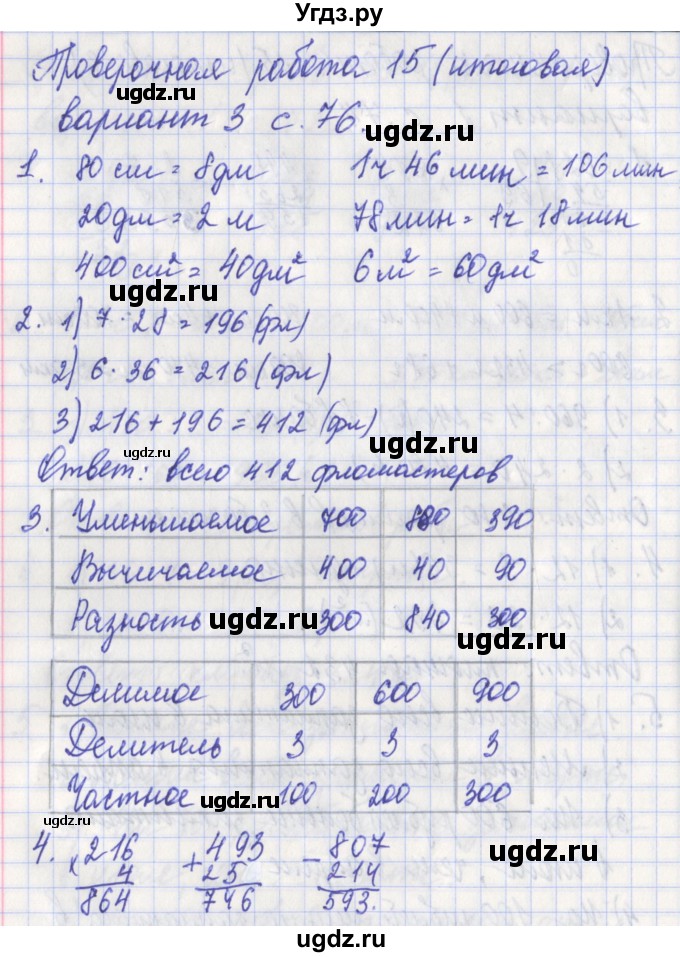 Угдз.ру
Проверочная работа 15 (итоговая)
вариант 3 с. 76.
1. 80 см = 8 дм 1 ч 46 мин = 106 мин
20 дм = 2 м 78 мин = 1 ч 18 мин
400 см² = 40 дм² 6 м² = 60 дм²
ugdz.ru
2. 1) 7 · 28 = 196 (фл)
2) 6 · 36 = 216 (фл)
ugdz.ru
3) 216 + 196 = 412 (фл)
ugdz.ru ugdz.ru
Ответ: всего 412 фломастеров
3. Уменьшаемое 700 880 390
ugdz.ru ugdz.ru
Вычичаемое 400 40 90
Разность 300 840 300
ugdz.ru ugdz.ru
Делимое 300 600 900
Делитель 3 3 3
Частное 100 200 300
ugdz.ru ugdz.ru
ugdz.ru
4. × 216 + 493 - 807
4 25 214
864 746 593.
ugdz.ru ugdz.ru
ugdz.ru